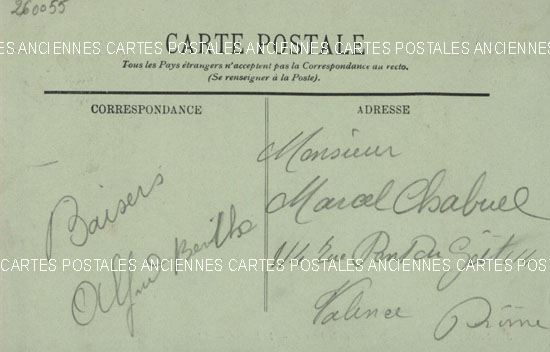 260055
CARTE POSTALE
ANCIENNES CARTES POSTALES ANCIENNES CARTES POSTALES ANCIENNES CARTES POSTALES
Tous les Pays étrangers n'acceptent pas la Correspondance au recto.
(Se renseigner à la Poste).
CORRESPONDANCE
Baisers
Alfred Berthe
ADRESSE
Monsieur
Marcel Chabuel
Rue Pont du
CARTES POSTALES ANCIENNES CARTES POSTALES ANCIENNES CARTES POSTALES ANCIENNES
Valence Drôme